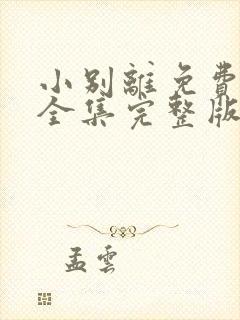 小别離免費
全集完整版
孟雲